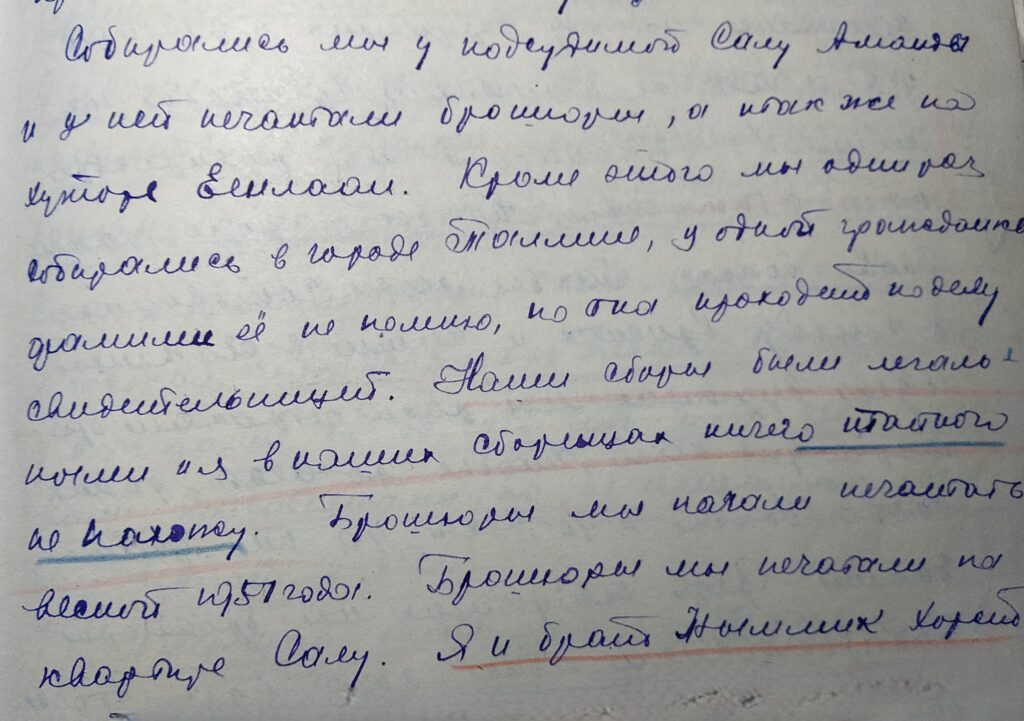 Собирались мы у подсудимой Салу Аманды
и у ней печатали брошюры, а так же на
хуторе Еенлаан. Кроме этого мы один раз
собирались в городе Таллине, у одной гражданке
фамилии её не помню, но она проходит по делу
свидетельницей. Наши сборы были легаль-
ными и я в наших сборищах ничего тайного
не нахожу. Брошюры мы начали печатать
весной 1951 года. Брошюры мы печатали на
квартире Салу. Я и брат Нымлик Хорейт